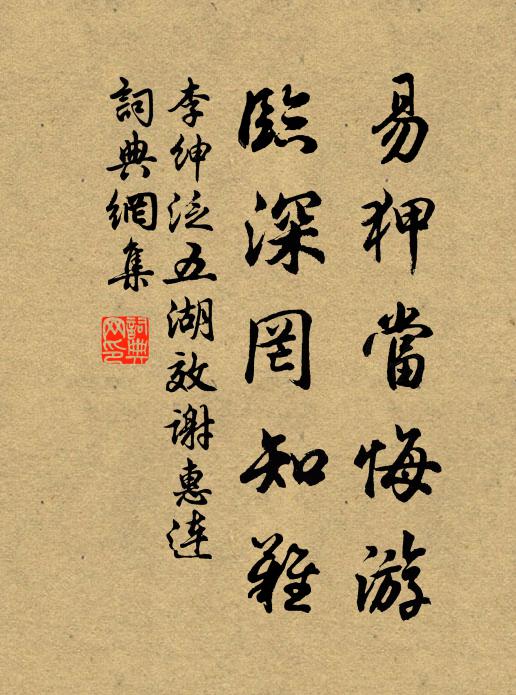 易狎當悔游
臨深罔知難
李紳泛五湖效謝惠连
詞典網集
詞典網印